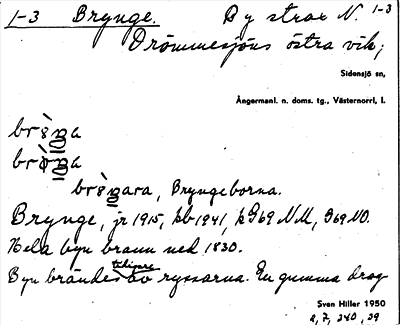 1-3 Brynge. By strax N. 1-3
Drömmesjöns östra vik;
Sidensjö sn,
Ångermanl. n. doms. tg., Västernorrl, l.
Bryngeborna.
Brynge, jr 1915, kb 1941, k G69 NM, G69 NO.
Hela byn brann ned 1830.
tidigare
Byn brändes av ryssarna. En gumma drog
Sven Hiller 1950
2, 7, 240, 29